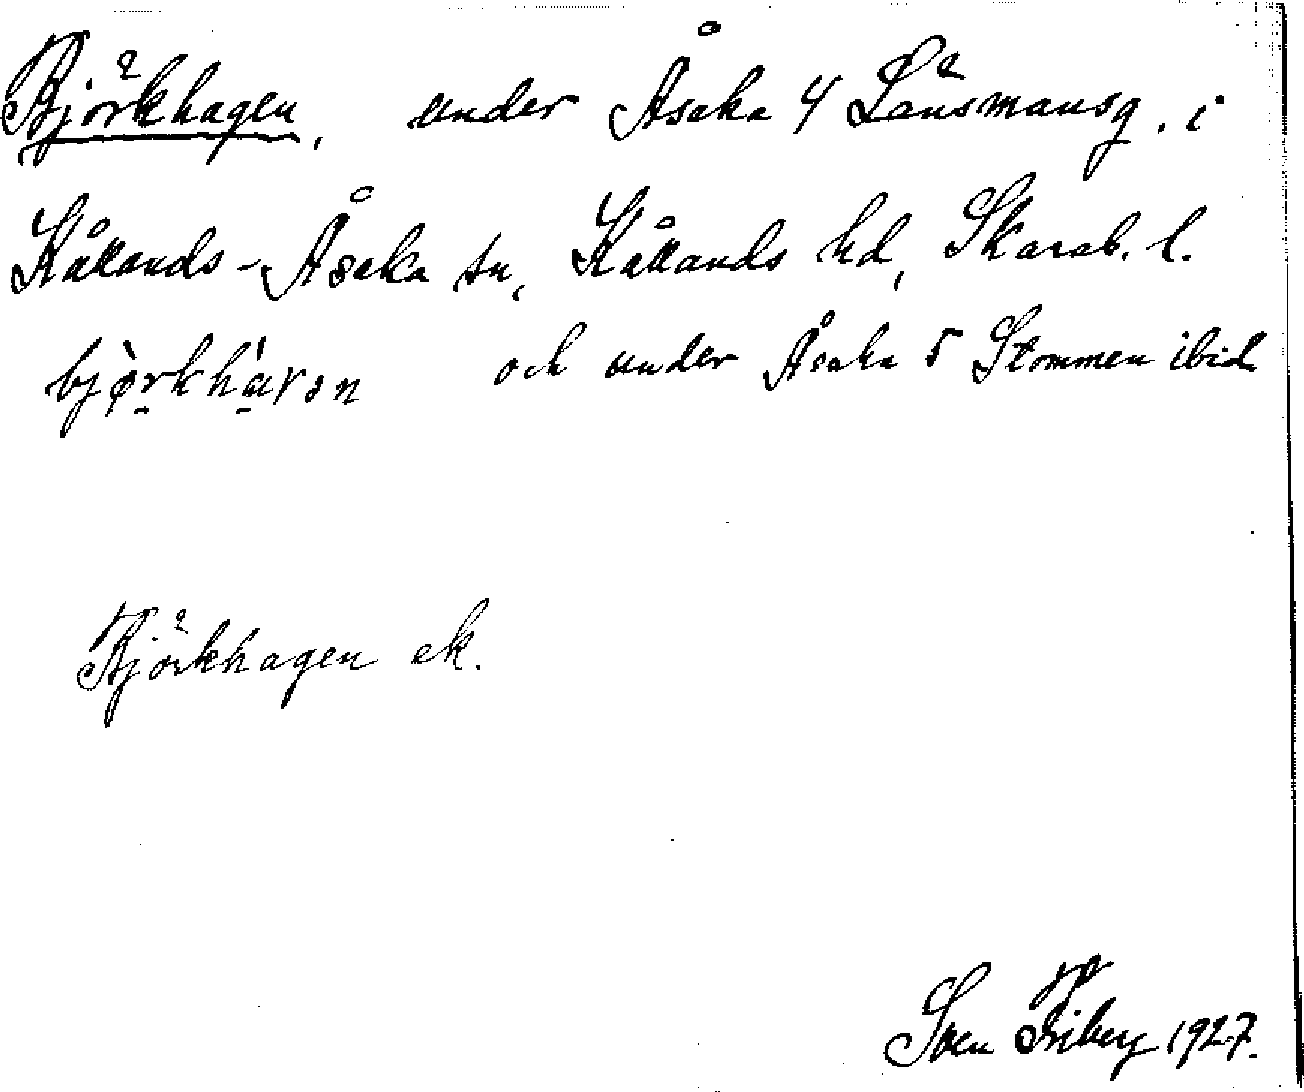 Björkhagen, under Åsaka 4 Länsmansg. i
Kållands-Åsaka sn, Kållands hd, Skarab. l.
bjö̀rkhávən och under Åsaka 5 Stommen ibid
Björkhagen ek.
Sven Friberg 1927.